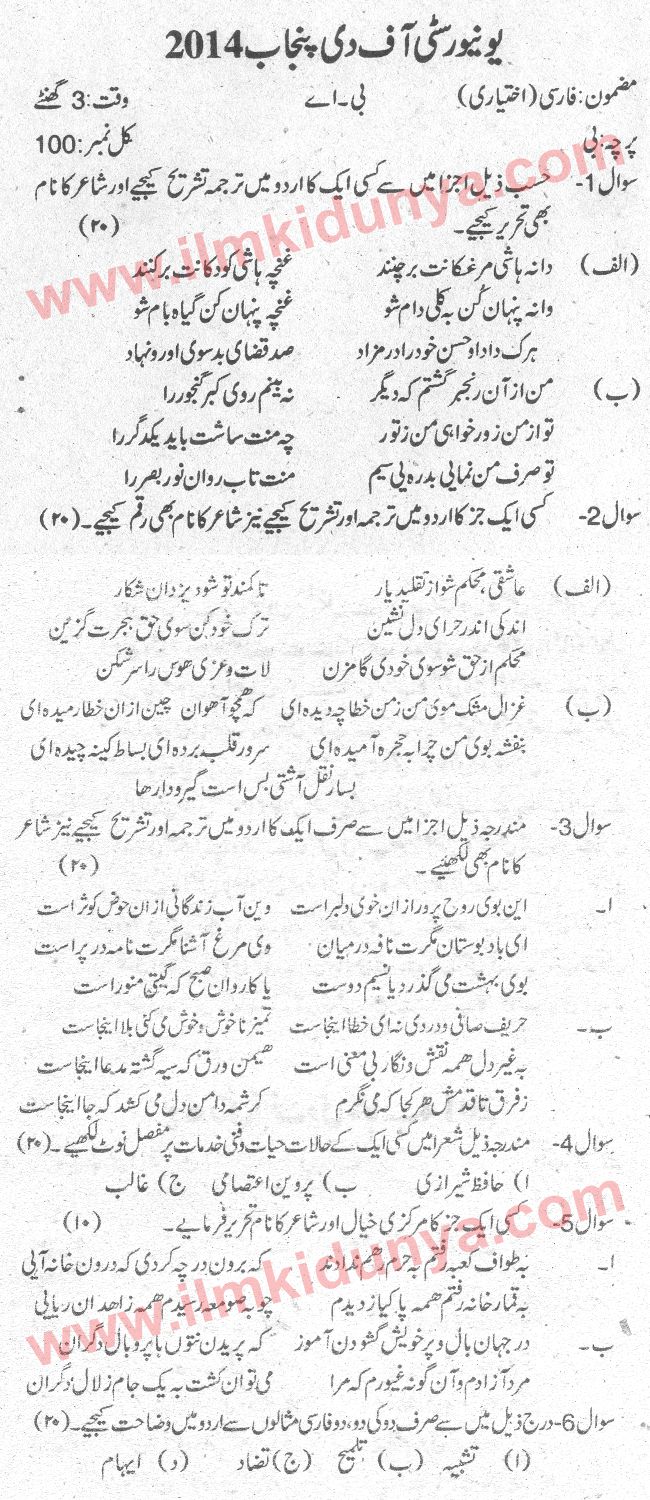 یونیورسٹی آف دی پنجاب 2014
مضمون: فارسی (اختیاری) بی۔اے وقت: 3 گھنٹے
پرچہ: بی کل نمبر: 100
سوال 1- حسب ذیل اجزا میں سے کسی ایک کا اردو میں ترجمہ تشریح کیجیے اور شاعر کا نام
بھی تحریر کیجیے۔ (۲۰)
(الف) دانہ باشی مرغکانت برچنند غنچہ باشی کودکانت برکنند
دانہ پنہان کُن بہ کلی دام شو غنچہ پنہان کن گیاہ بام شو
ہرک داد او حسن خود را در مزاد صد قضای بد سوی او رو نہاد
(ب) من از آن رنجبر گشتم کہ دیگر نہ بینم روی کبر گنجور را
تو از من زور خواہی من ز تو زر چہ منت ساشت باید یکدگر را
تو صرف من نمایی بدرہ یی سیم منت تاب روان نور بصر را
سوال 2- کسی ایک جز کا اردو میں ترجمہ اور تشریح کیجیے نیز شاعر کا نام بھی رقم کیجیے۔ (۲۰)
(الف) عاشقی، محکم شو از تقلید یار تا کمند تو شود یزدان شکار
اندکی اندر حرای دل نشین ترک خود کن سوی حق ہجرت گزین
محکم از حق شو سوی خودی گامزن لات و عزی ھوس را سر شکن
(ب) غزال مشک موی من زمن خطا چہ دیدہ ای کہ ھمچو آھوان چین ازان خطا رمیدہ ای
بنفشہ بوی من چرا بہ حجرہ آمیدہ ای سرور قلب بردہ ای بساط کینہ چیدہ ای
بسار نقل آشتی بس است گیر و دارھا
سوال 3- مندرجہ ذیل اجزا میں سے صرف ایک کا اردو میں ترجمہ اور تشریح کیجیے نیز شاعر
کا نام بھی لکھئیے۔ (۲۰)
ا۔ این بوی روح پرور ازان خوی دلبر است وین آب زندگانی ازان حوض کوثر است
ای باد بوستان مگرت نافہ درمیان وی مرغ آشنا مگرت نامہ در پر است
بوی بہشت می گذرد یا نسیم دوست یا کاروان صبح کہ گیتی منور است
ب۔ حریف صافی و دردی نہ ای خطا اینجاست تمیز ناخوش و خوش می کنی بلا اینجاست
بہ غیر دل ھمہ نقش و نگار بی معنی است ھیمن ورق کہ سیہ گشتہ مدعا اینجاست
ز فرق تا قدمش ھر کجا کہ می نگرم کرشمہ دامن دل می کشد کہ جا اینجاست
سوال 4- مندرجہ ذیل شعرا میں کسی ایک کے حالات حیات و فنی خدمات پر مفصل نوٹ لکھیے۔ (۲۰)
ا) حافظ شیرازی ب) پروین اعتصامی ج) غالب
سوال 5- کسی ایک جز کا مرکزی خیال اور شاعر کا نام تحریر فرمایے۔ (۱۰)
ا۔ بہ طواف کعبہ رفتم بہ حرم رھم ندادند کہ برون در چہ کردی کہ درون خانہ آیی
بہ قمار خانہ رفتم ھمہ پاکباز دیدم چو بہ صومعہ رسیدم ھمہ زاھد ان ریایی
ب۔ در جہان بال و پر خویش گشودن آموز کہ پریدن نتوں با پر و بال دگران
مرد آزادم و آن گونہ غیورم کہ مرا می توان کشت بہ یک جام زلال دگران
سوال 6- درج ذیل میں سے صرف دو کی دو، دو فارسی مثالوں سے اردو میں وضاحت کیجیے۔ (۲۰)
(ا) تشبیہ (ب) تلمیح (ج) تضاد (د) ایہام
www.ilmkidunya.com
www.ilmkidunya.com